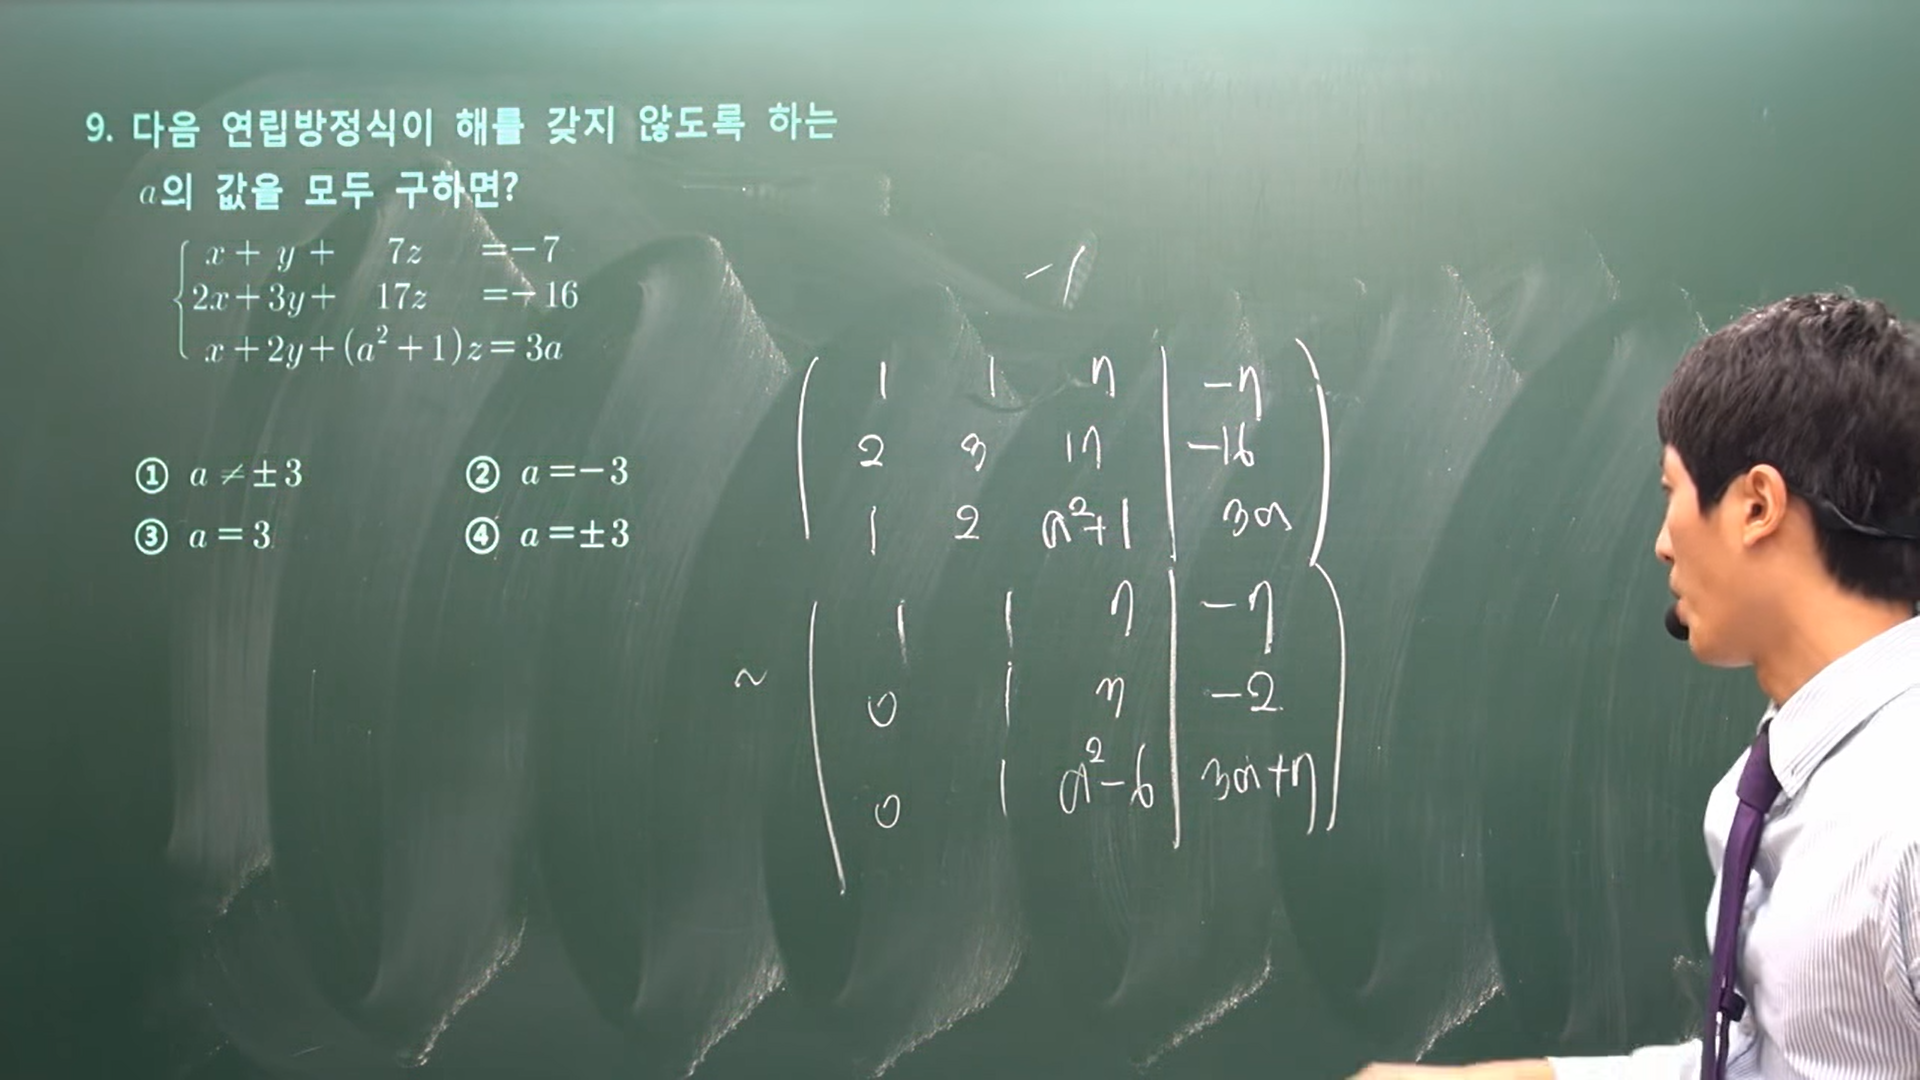 9. 다음 연립방정식이 해를 갖지 않도록 하는
a의 값을 모두 구하면?
x + y + 7z = -7
2x + 3y + 17z = -16
x + 2y + (a² + 1)z = 3a
① a ≠ ±3 ② a = -3
③ a = 3 ④ a = ±3
-1
1 1 7 | -7
2 3 17 | -16
1 2 a²+1 | 3a
1 1 7 | -7
~ 0 1 | -2
0 1 a²-6 | 3a+7